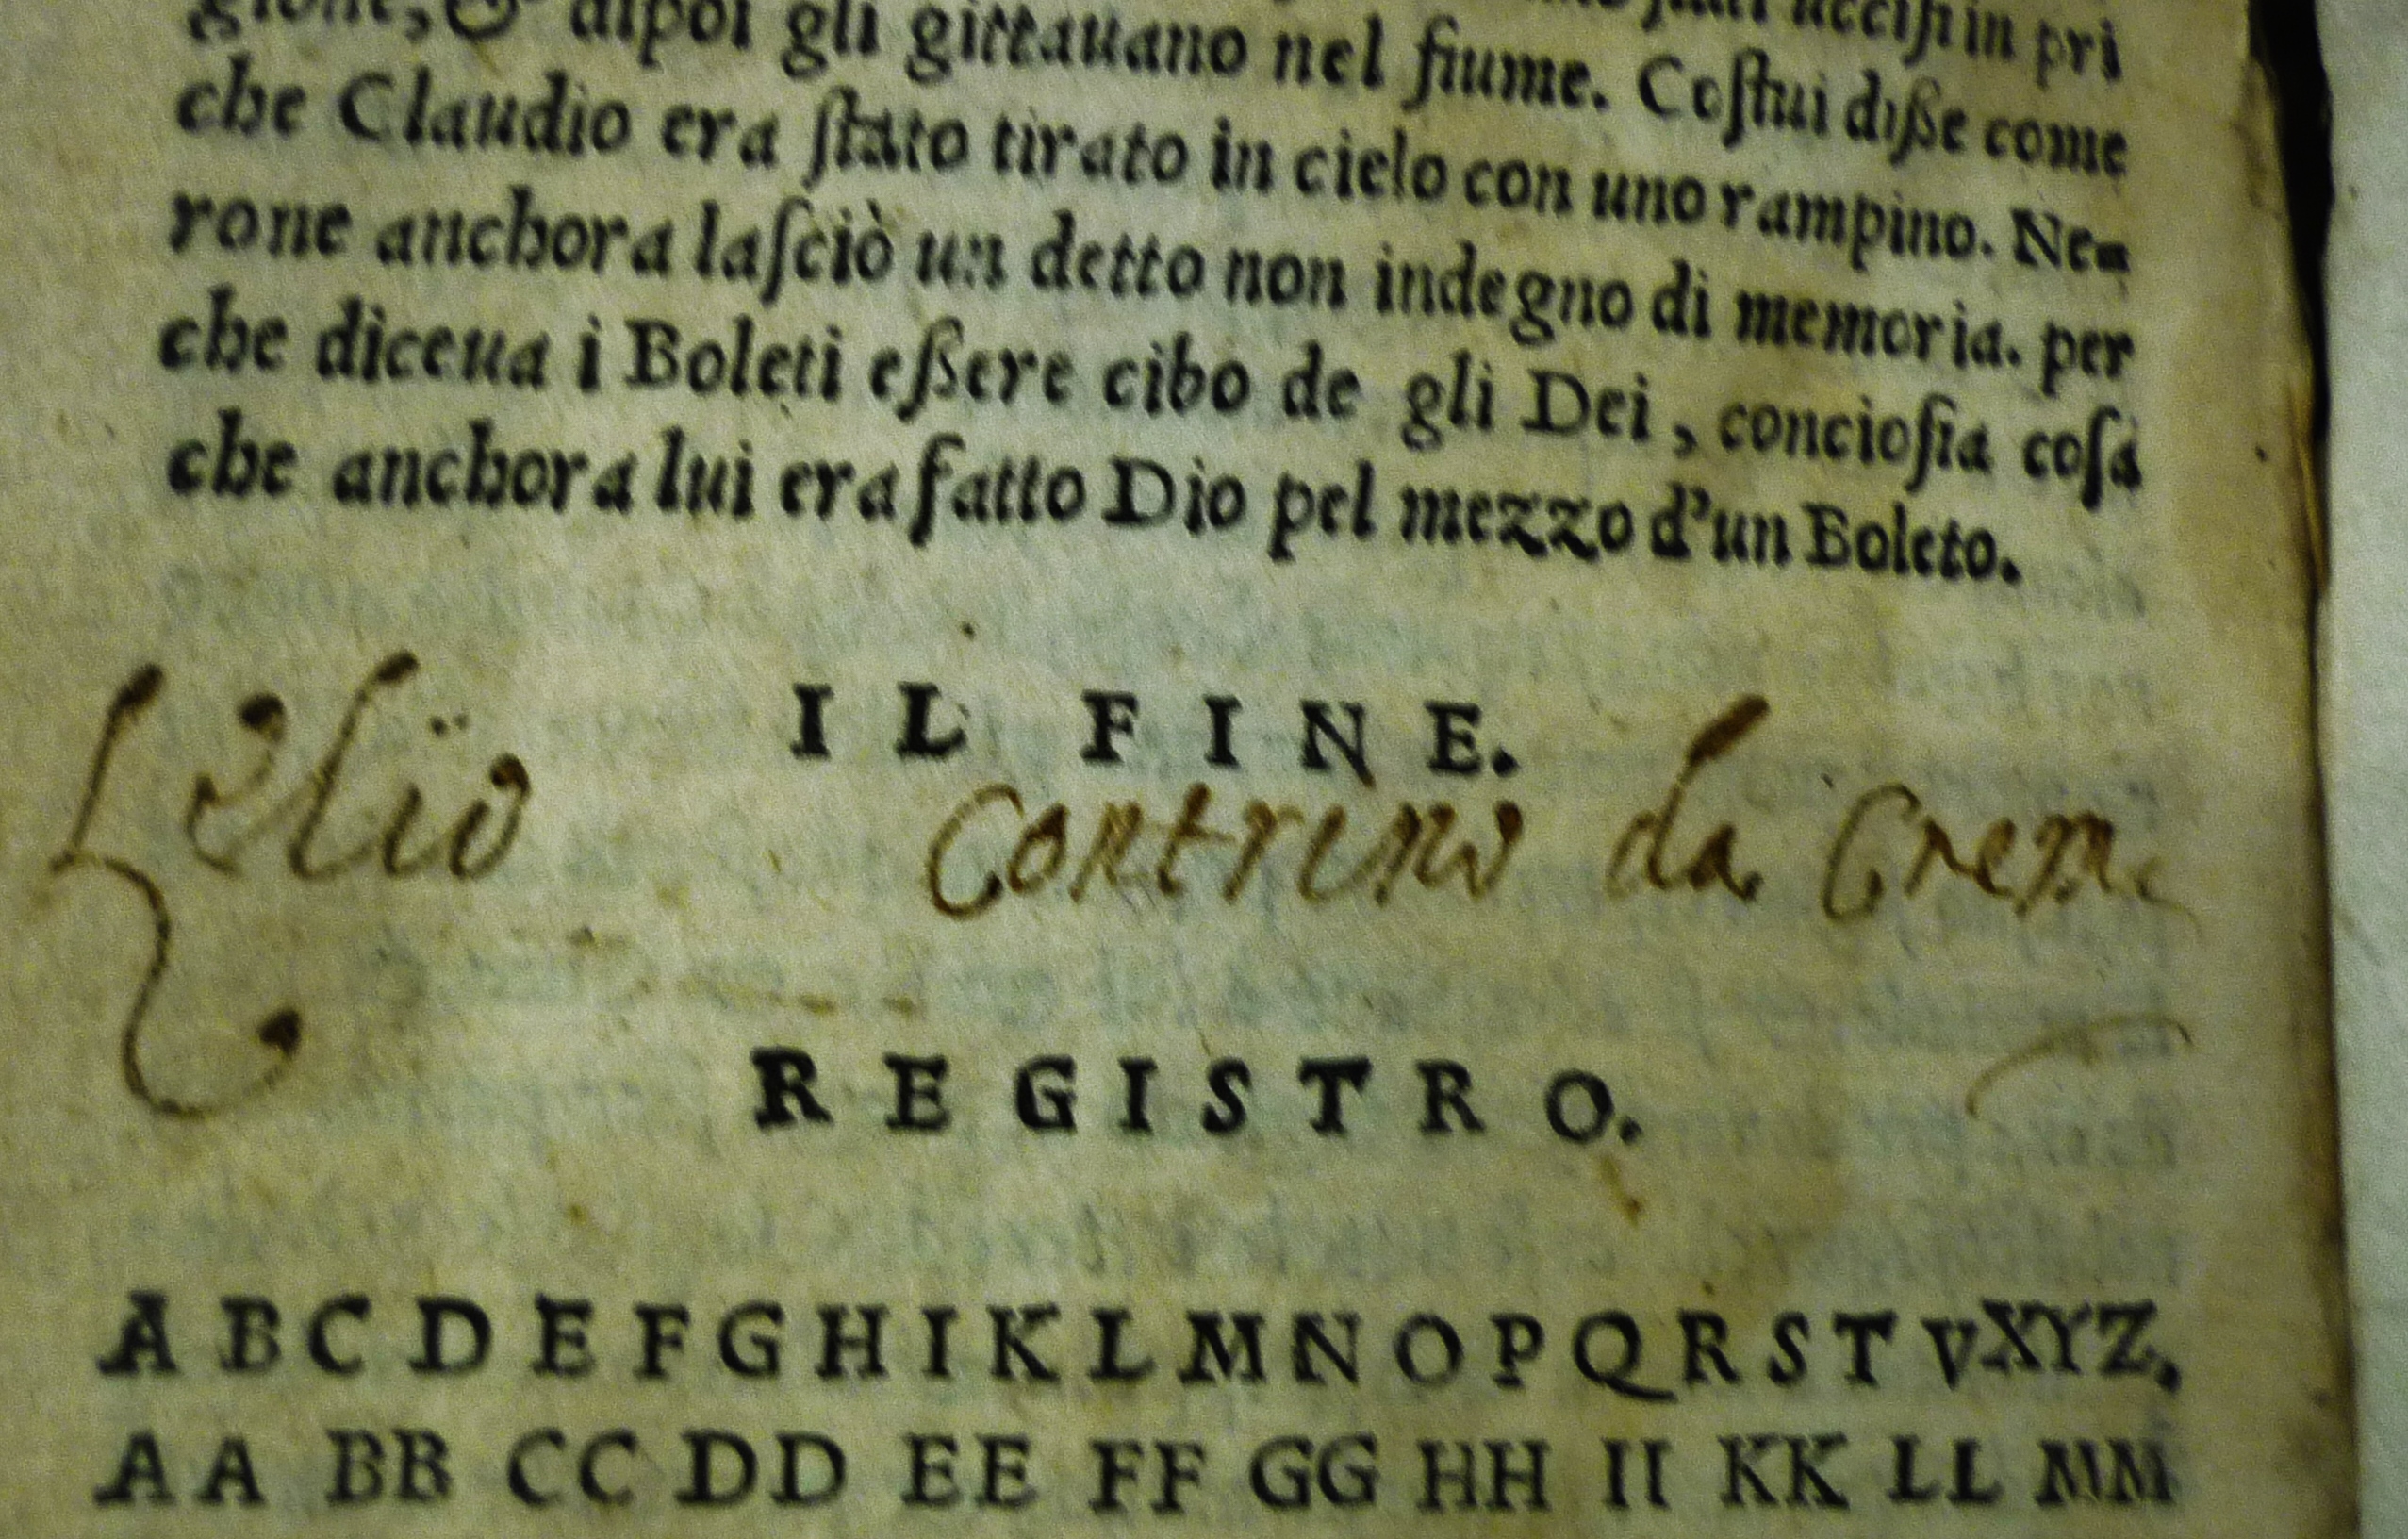 dipoi gli gittauano nel fiume. Coſtui diſſe come ucciſi in pri
che Claudio era ſtato tirato in cielo con uno rampino. Ne-
rone anchora laſciò un detto non indegno di memoria. per
che diceua i Boleti eſſere cibo de gli Dei, concioſia coſa
che anchora lui era fatto Dio pel mezzo d'un Boleto.
IL FINE.
Lelio Contrino da Crem
REGISTRO.
A B C D E F G H I K L M N O P Q R S T V X Y Z,
AA BB CC DD EE FF GG HH II KK LL MM